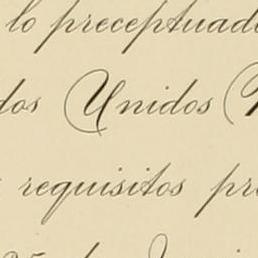 lo preceptuado
dos Unidos (
requisitos pre